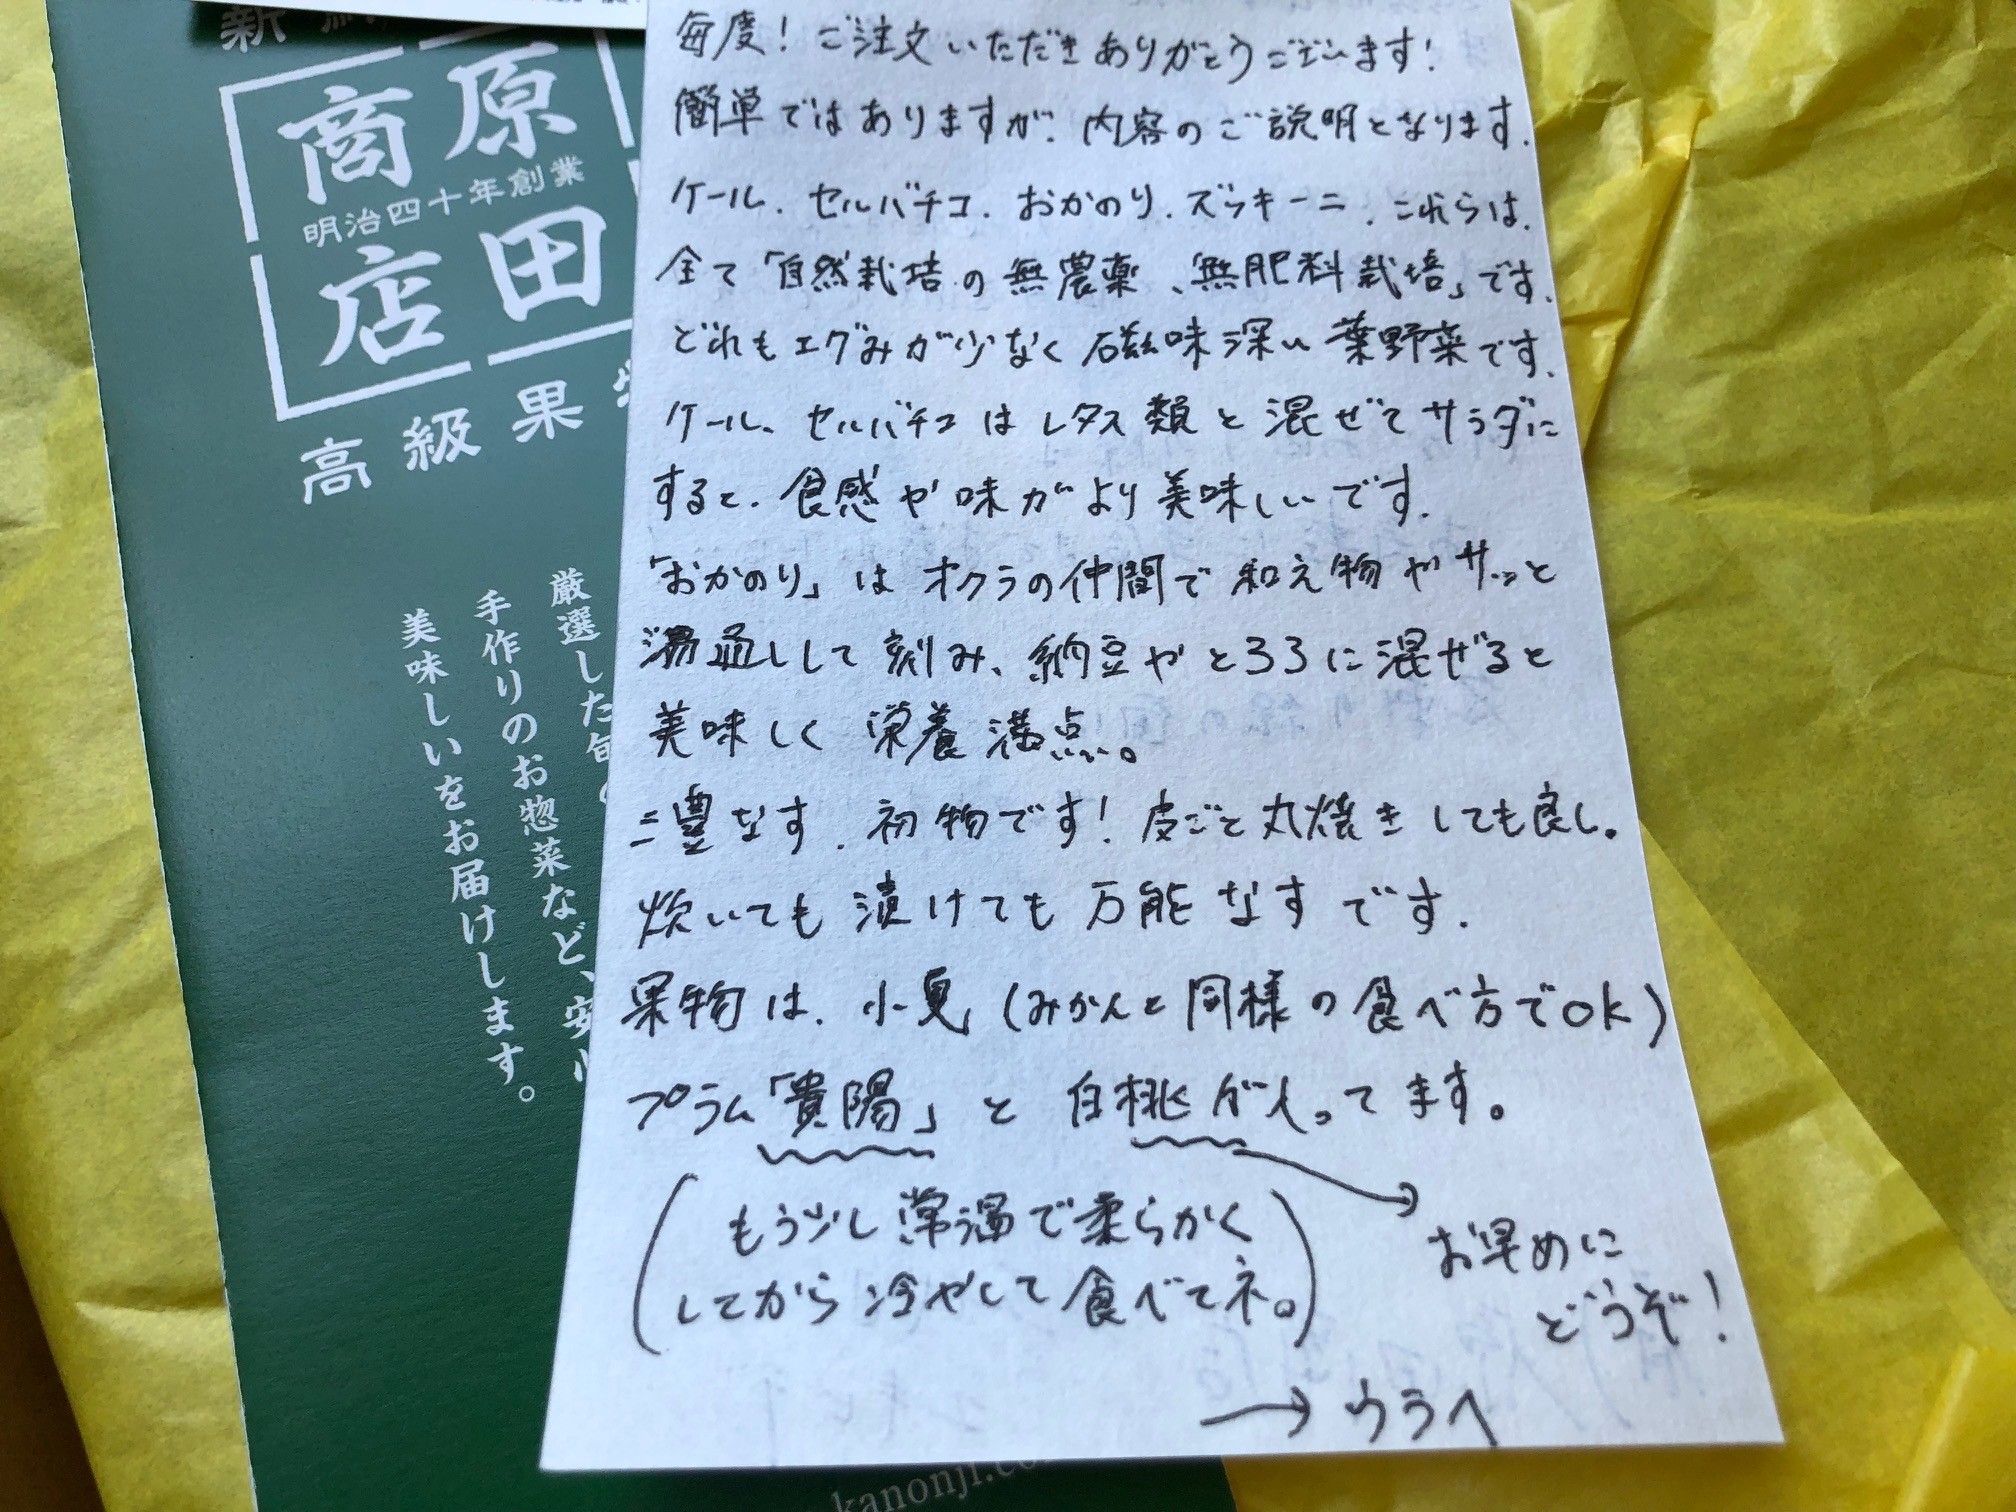 毎度！ご注文いただきありがとうございます！
簡単ではありますが、内容のご説明となります。
ケール、セルバチコ、おかのり、ズッキーニ、これらは、
全て「自然栽培の無農薬、無肥料栽培」です。
どれもエグみが少なく磁味深い葉野菜です。
ケール、セルバチコはレタス類と混ぜてサラダに
すると、食感や味がより美味しいです。
「おかのり」はオクラの仲間で和え物やサッと
湯通しして刻み、納豆やとろろに混ぜると
美味しく栄養満点。
三豊なす、初物です！皮ごと丸焼きしても良し。
炊いても漬けても万能なすです。
果物は、小夏（みかんと同様の食べ方でOK）
プラム「貴陽」と白桃が入ってます。
（もう少し常温で柔らかく
してから冷やして食べてネ。）
お早めに
どうぞ！
→ウラへ
原田
商店
明治四十年創業
高級果
厳選した旬の
手作りのお惣菜など、安
美味しいをお届けします。
kanonji.co